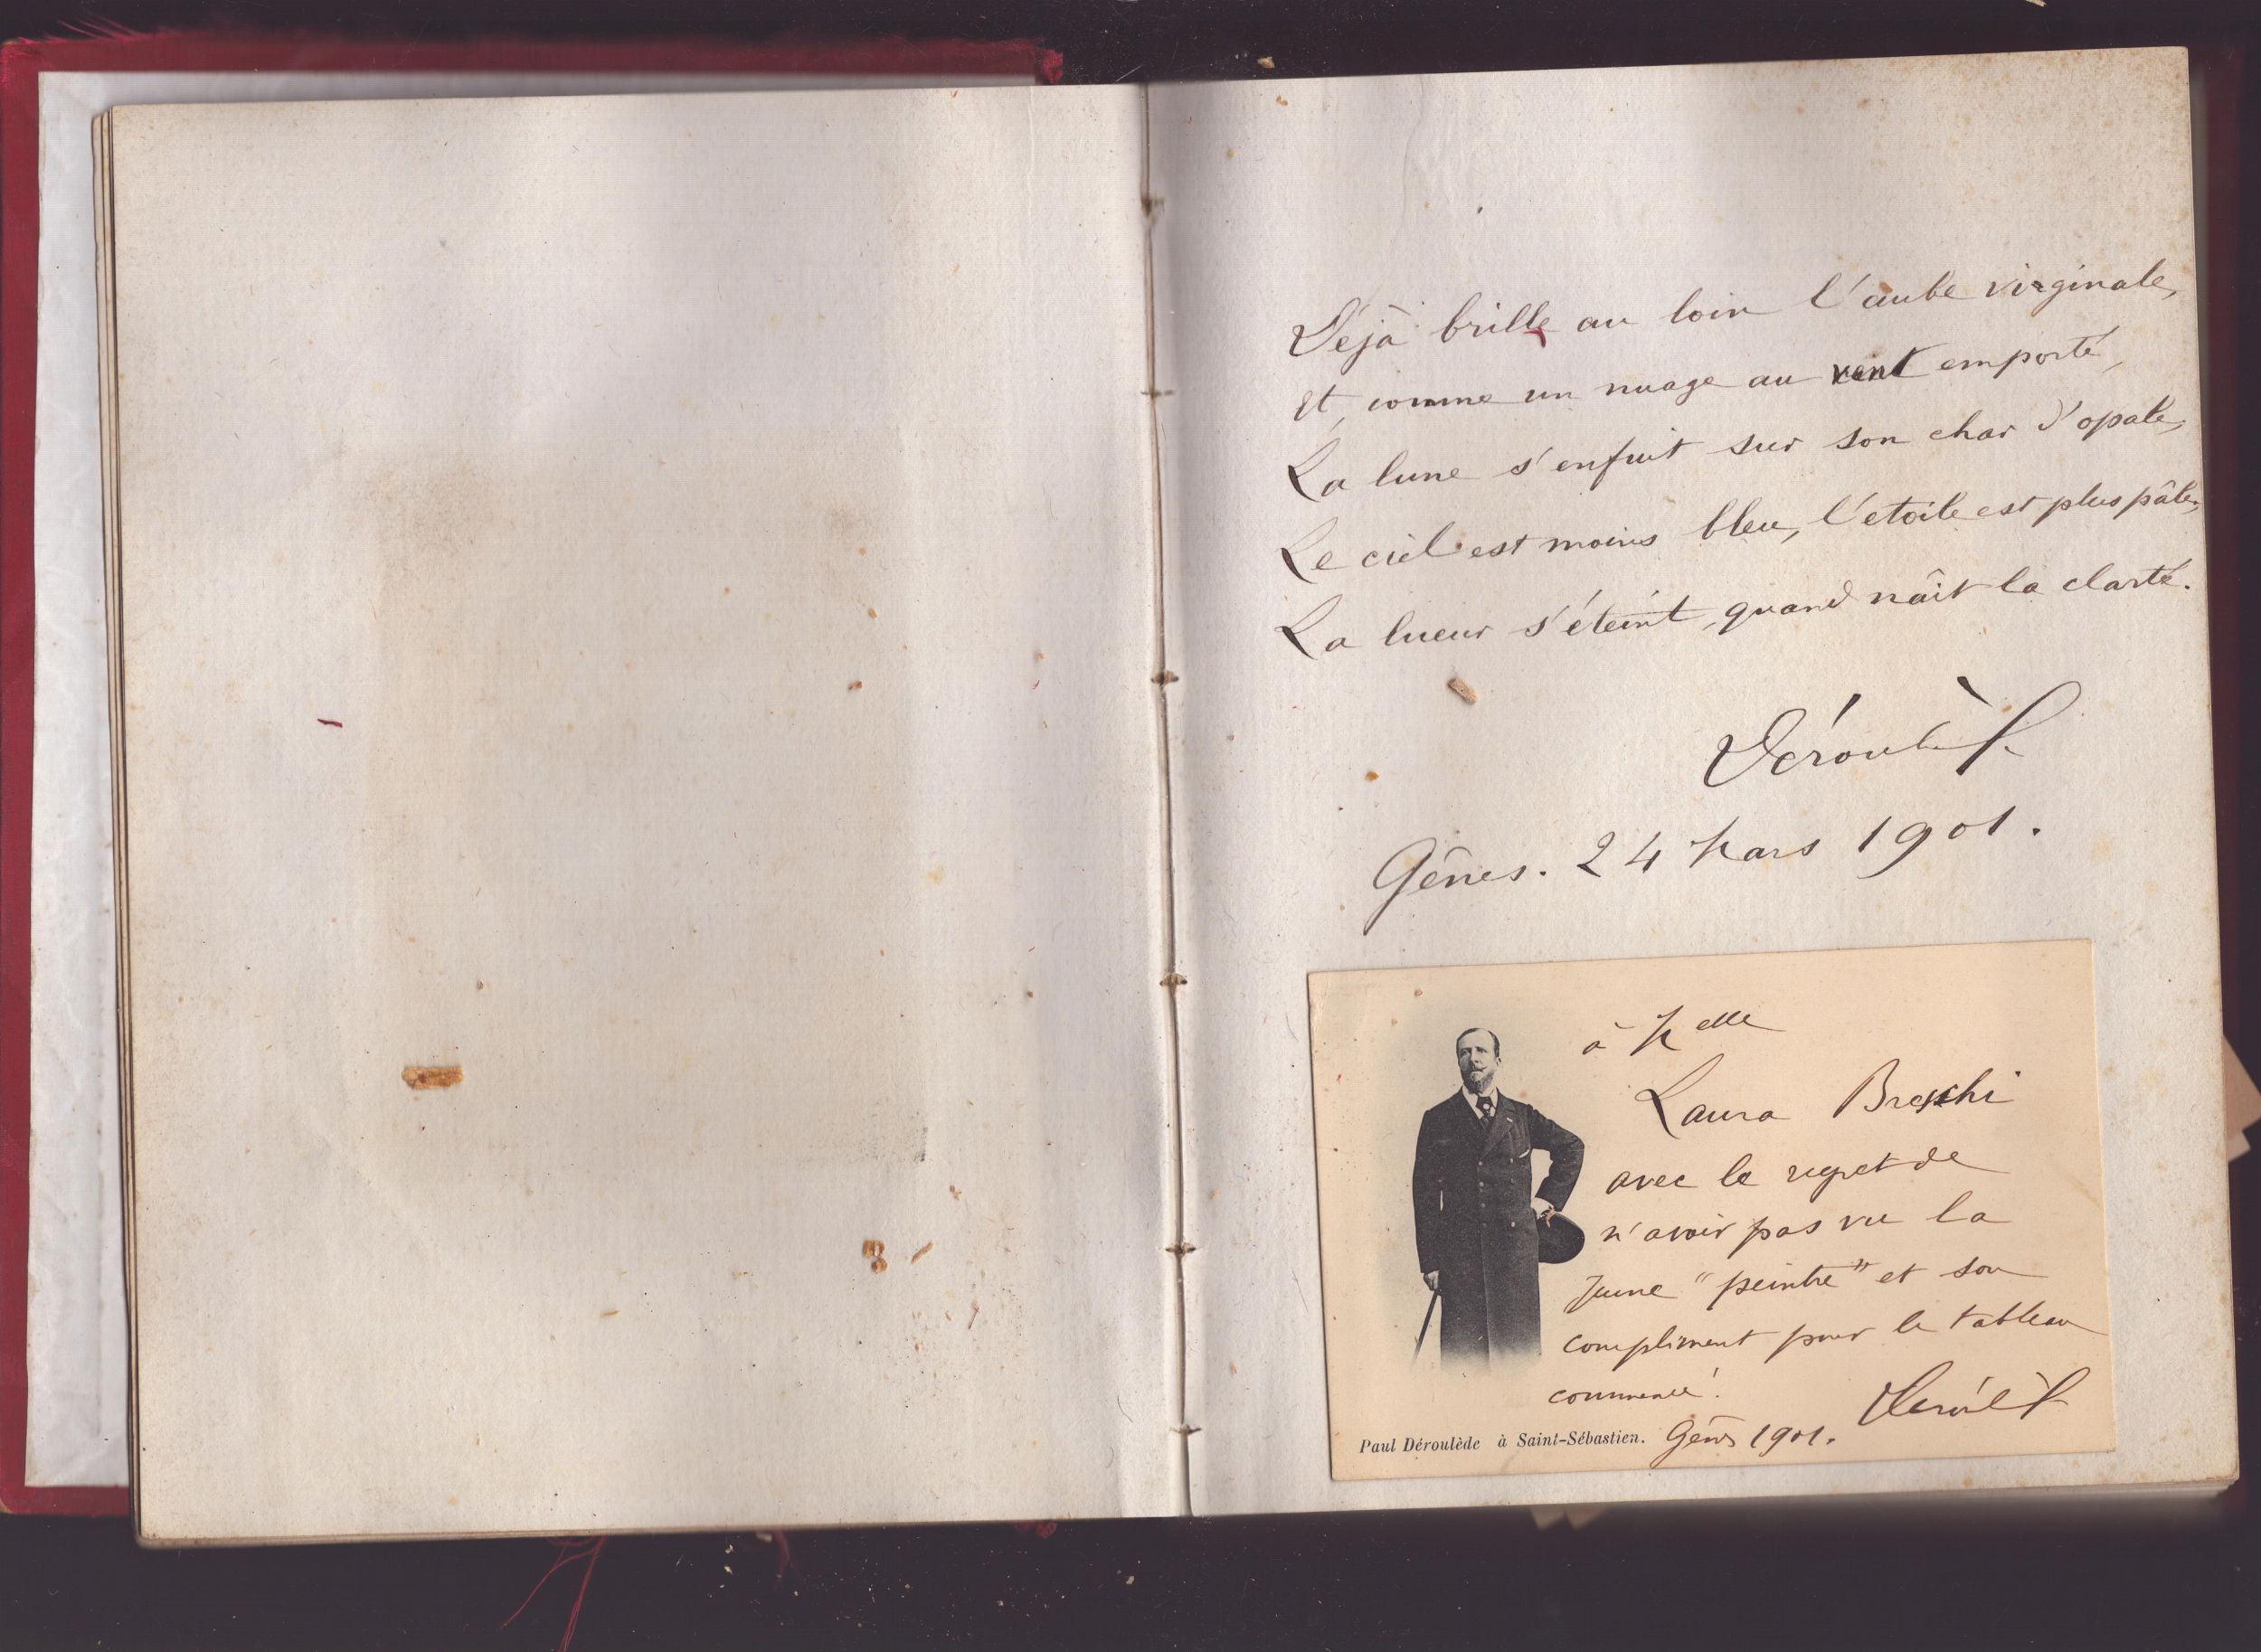 Déjà brille au loin l'aube virginale,
Et, comme un nuage au vent emporté,
La lune s'enfuit sur son char d'opale,
Le ciel est moins bleu, l'etoile est plus pâle,
La lueur s'éteint, quand naît la clarté.
Déroulède
Gênes. 24 Mars 1901.
à Melle
Laura
avec le regret de
n'avoir pas vu la
jeune "peintre" et son
compliment pour le tableau
commencé!
Déroulède
Paul Déroulède à Saint-Sébastien. Gênes 1901.